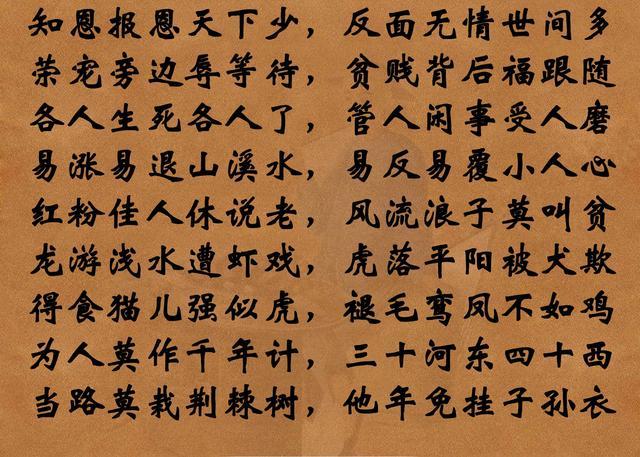 知恩报恩天下少，反面无情世间多
荣宠旁边辱等待，贫贱背后福跟随
各人生死各人了，管人闲事受人磨
易涨易退山溪水，易反易覆小人心
红粉佳人休说老，风流浪子莫叫贫
龙游浅水遭虾戏，虎落平阳被犬欺
得食猫儿强似虎，褪毛鸾凤不如鸡
为人莫作千年计，三十河东四十西
当路莫栽荆棘树，他年免挂子孙衣